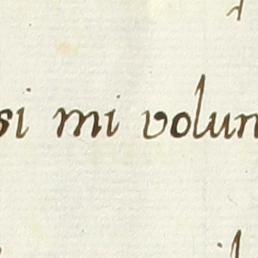 si mi volun